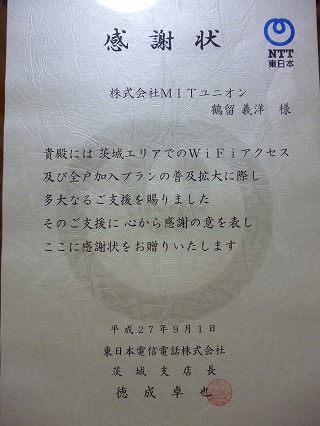 感謝状
NTT
東日本
株式会社MITユニオン
鶴留 義洋 様
貴殿には 茨城エリアでのWiFiアクセス
及び全戸加入プランの普及拡大に際し
多大なるご支援を賜りました
そのご支援に 心から感謝の意を表し
ここに感謝状をお贈りいたします
平成27年9月1日
東日本電信電話株式会社
茨城支店長
徳成卓也